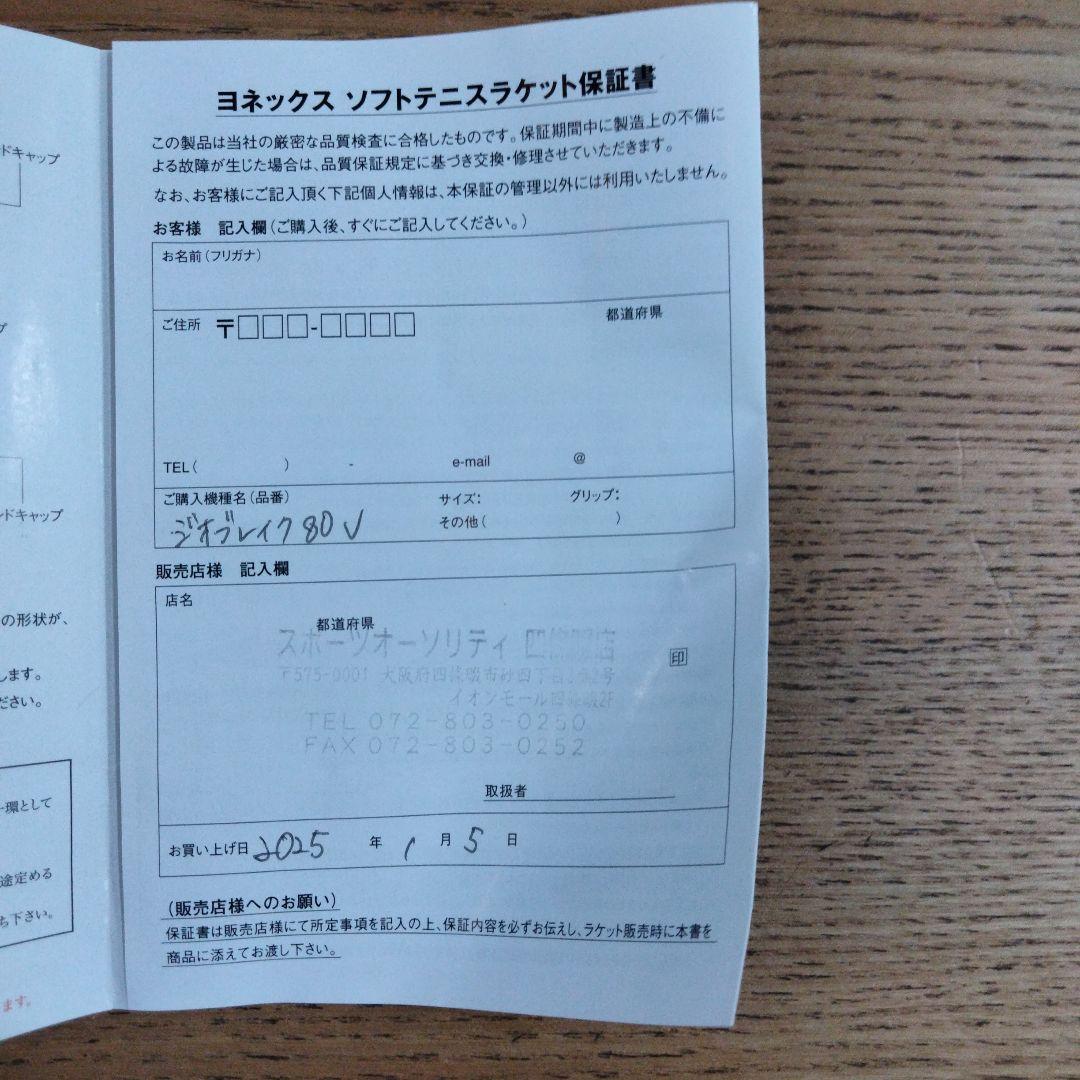 ドキャップ
ンドキャップ
の形状が、
します。
ださい。
一環として
途定める
ち下さい。
ます。
ヨネックス ソフトテニスラケット保証書
この製品は当社の厳密な品質検査に合格したものです。保証期間中に製造上の不備に
よる故障が生じた場合は、品質保証規定に基づき交換・修理させていただきます。
なお、お客様にご記入頂く下記個人情報は、本保証の管理以外には利用いたしません。
お客様 記入欄(ご購入後、すぐにご記入してください。)
お名前(フリガナ)
ご住所 〒□□□-□□□□ 都道府県
TEL( ) - e-mail @
ご購入機種名(品番) サイズ: グリップ:
ジオブレイク80V その他( )
販売店様 記入欄
店名
都道府県
スポーツオーソリティ 四條畷店
〒575-0001 大阪府四條畷市砂四丁目 号
イオンモール四條畷2F
印
TEL 072-803-0250
FAX 072-803-0252
取扱者
お買い上げ日 2025 年 1 月 5 日
(販売店様へのお願い)
保証書は販売店様にて所定事項を記入の上、保証内容を必ずお伝えし、ラケット販売時に本書を
商品に添えてお渡し下さい。